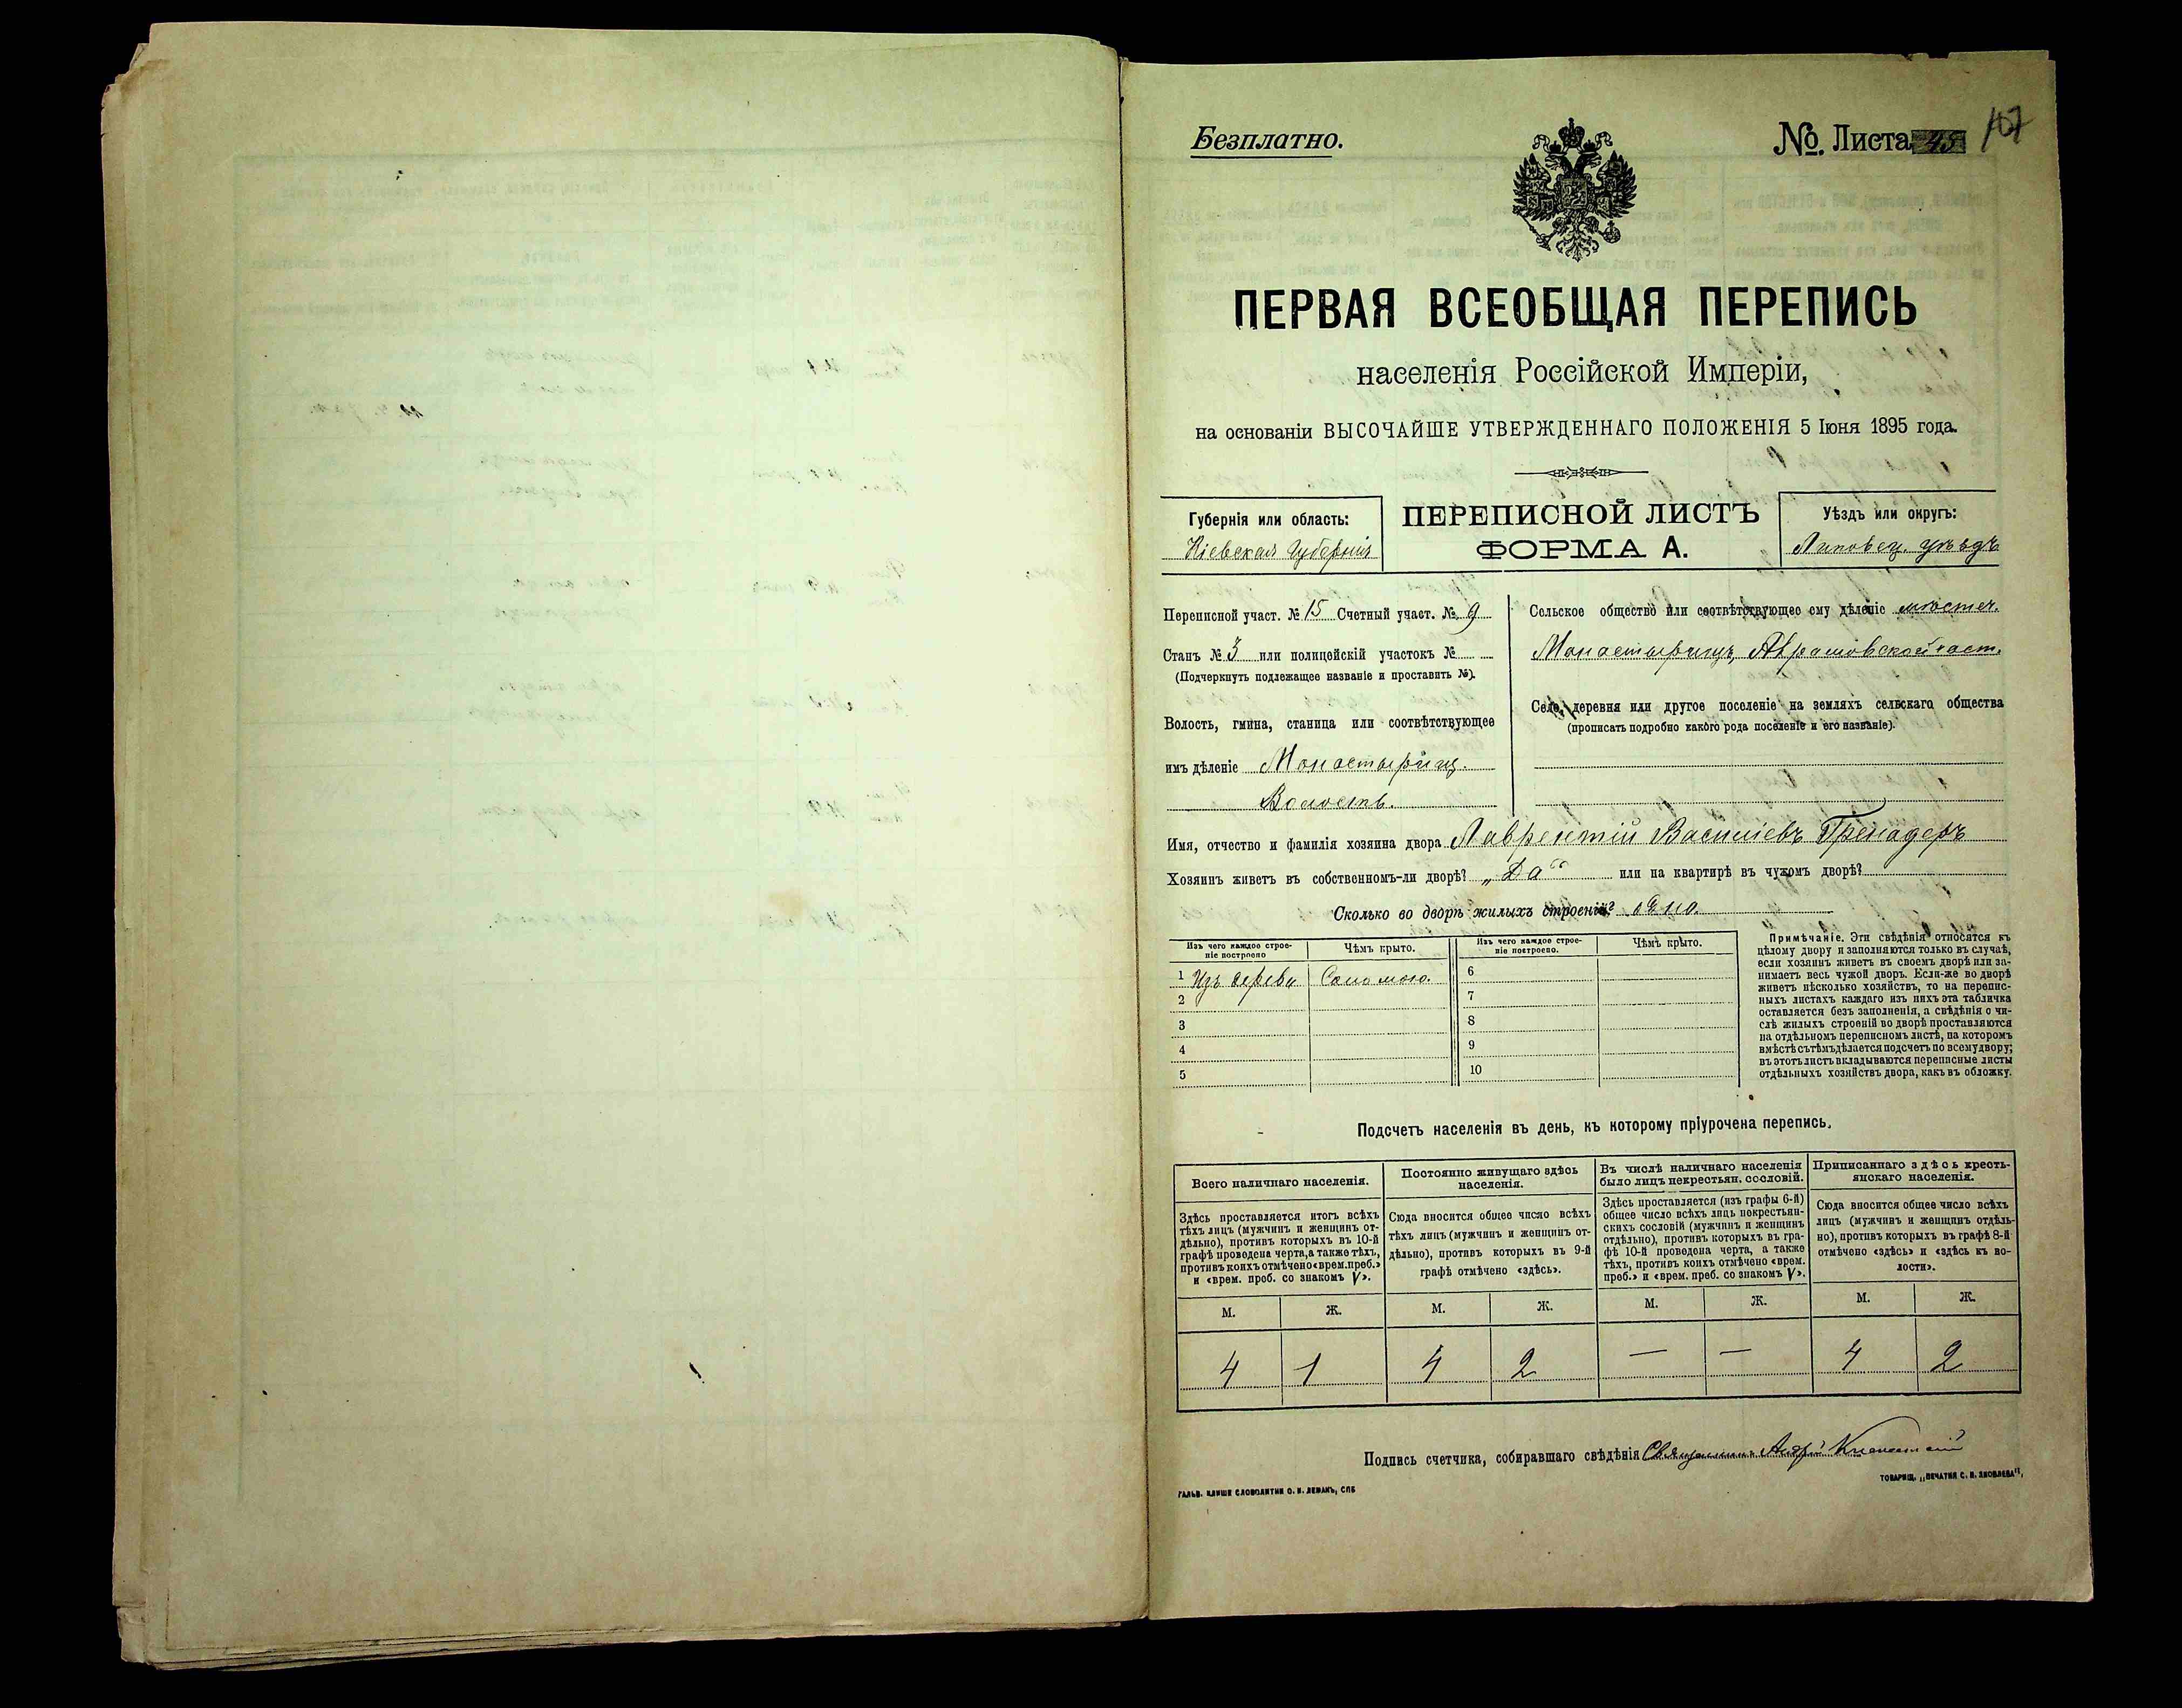 Безплатно.
№. Листа 45 107
ПЕРВАЯ ВСЕОБЩАЯ ПЕРЕПИСЬ
населенія Россійской Имперіи,
на основаніи ВЫСОЧАЙШЕ УТВЕРЖДЕННАГО ПОЛОЖЕНІЯ 5 Іюня 1895 года.
Губернія или область:
Кіевская Губернія
ПЕРЕПИСНОЙ ЛИСТЪ
ФОРМА А.
Уѣздъ или округъ:
Липовец. уѣздъ
Переписной участ. № 15 Счетный участ. № 9
Станъ № 3 или полицейскій участокъ №
(Подчеркнуть подлежащее названіе и проставить №).
Волость, гмина, станица или соотвѣтствующее
имъ дѣленіе Монастырищ.
Волость.
Сельское общество или соотвѣтствующее ему дѣленіе мѣстеч.
Монастырищъ, Аврамовской част.
Село, деревня или другое поселеніе на земляхъ сельскаго общества
(прописать подробно какого рода поселеніе и его названіе).
Имя, отчество и фамилія хозяина двора Лаврентій Василіевъ Гренадеръ
Хозяинъ живетъ въ собственномъ-ли дворѣ? „Да“ или на квартирѣ въ чужомъ дворѣ?
Сколько во дворѣ жилыхъ строеній? одно.
Изъ чего каждое строе-
ніе построено
Чѣмъ крыто.
Изъ чего каждое строе-
ніе построено.
Чѣмъ крыто.
1 Изъ дерева Соломою. 6
2 7
3 8
4 9
5 10
Примѣчаніе. Эти свѣдѣнія относятся къ
цѣлому двору и заполняются только въ случаѣ,
если хозяинъ живетъ въ своемъ дворѣ или за-
нимаетъ весь чужой дворъ. Если-же во дворѣ
живетъ нѣсколько хозяйствъ, то на перепис-
ныхъ листахъ каждаго изъ нихъ эта табличка
оставляется безъ заполненія, а свѣдѣнія о чи-
слѣ жилыхъ строеній во дворѣ проставляются
на отдѣльномъ переписномъ листѣ, на которомъ
вмѣстѣ съ тѣмъ дѣлается подсчетъ по всему двору;
въ этотъ листъ вкладываются переписные листы
отдѣльныхъ хозяйствъ двора, какъ въ обложку.
Подсчетъ населенія въ день, къ которому пріурочена перепись.
Всего наличнаго населенія.
Здѣсь проставляется итогъ всѣхъ
тѣхъ лицъ (мужчинъ и женщинъ от-
дѣльно), противъ которыхъ въ 10-й
графѣ проведена черта, а также тѣхъ,
противъ коихъ отмѣчено «врем. преб.»
и «врем. преб. со знакомъ V».
Постоянно живущаго здѣсь
населенія.
Сюда вносится общее число всѣхъ
тѣхъ лицъ (мужчинъ и женщинъ от-
дѣльно), противъ которыхъ въ 9-й
графѣ отмѣчено «здѣсь».
Въ числѣ наличнаго населенія
было лицъ некрестьян. сословій.
Здѣсь проставляется (изъ графы 6-й)
общее число всѣхъ лицъ некрестьян-
скихъ сословій (мужчинъ и женщинъ
отдѣльно), противъ которыхъ въ гра-
фѣ 10-й проведена черта, а также
тѣхъ, противъ коихъ отмѣчено «врем.
преб.» и «врем. преб. со знакомъ V».
Приписаннаго здѣсь кресть-
янскаго населенія.
Сюда вносится общее число всѣхъ
лицъ (мужчинъ и женщинъ отдѣль-
но), противъ которыхъ въ графѣ 8-й
отмѣчено «здѣсь» и «здѣсь къ во-
лости».
М. Ж. М. Ж. М. Ж. М. Ж.
4 1 4 2 — — 4 2
Подпись счетчика, собиравшаго свѣдѣнія Священникъ Андрій
ГАЛЬВ. КЛИШЕ СЛОВОЛИТНИ О. И. ЛЕМАНЪ, СПБ
ТОВАРИЩ. „ПЕЧАТНЯ С. П. ЯКОВЛЕВА“,